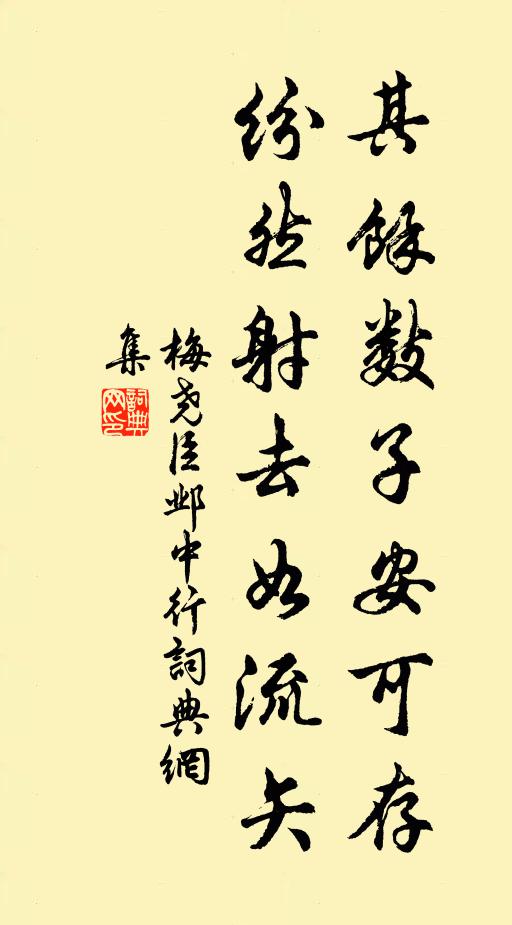 其餘數子安可存
紛然射去如流矢
梅堯臣邺中行詞典網
集
詞典
网印